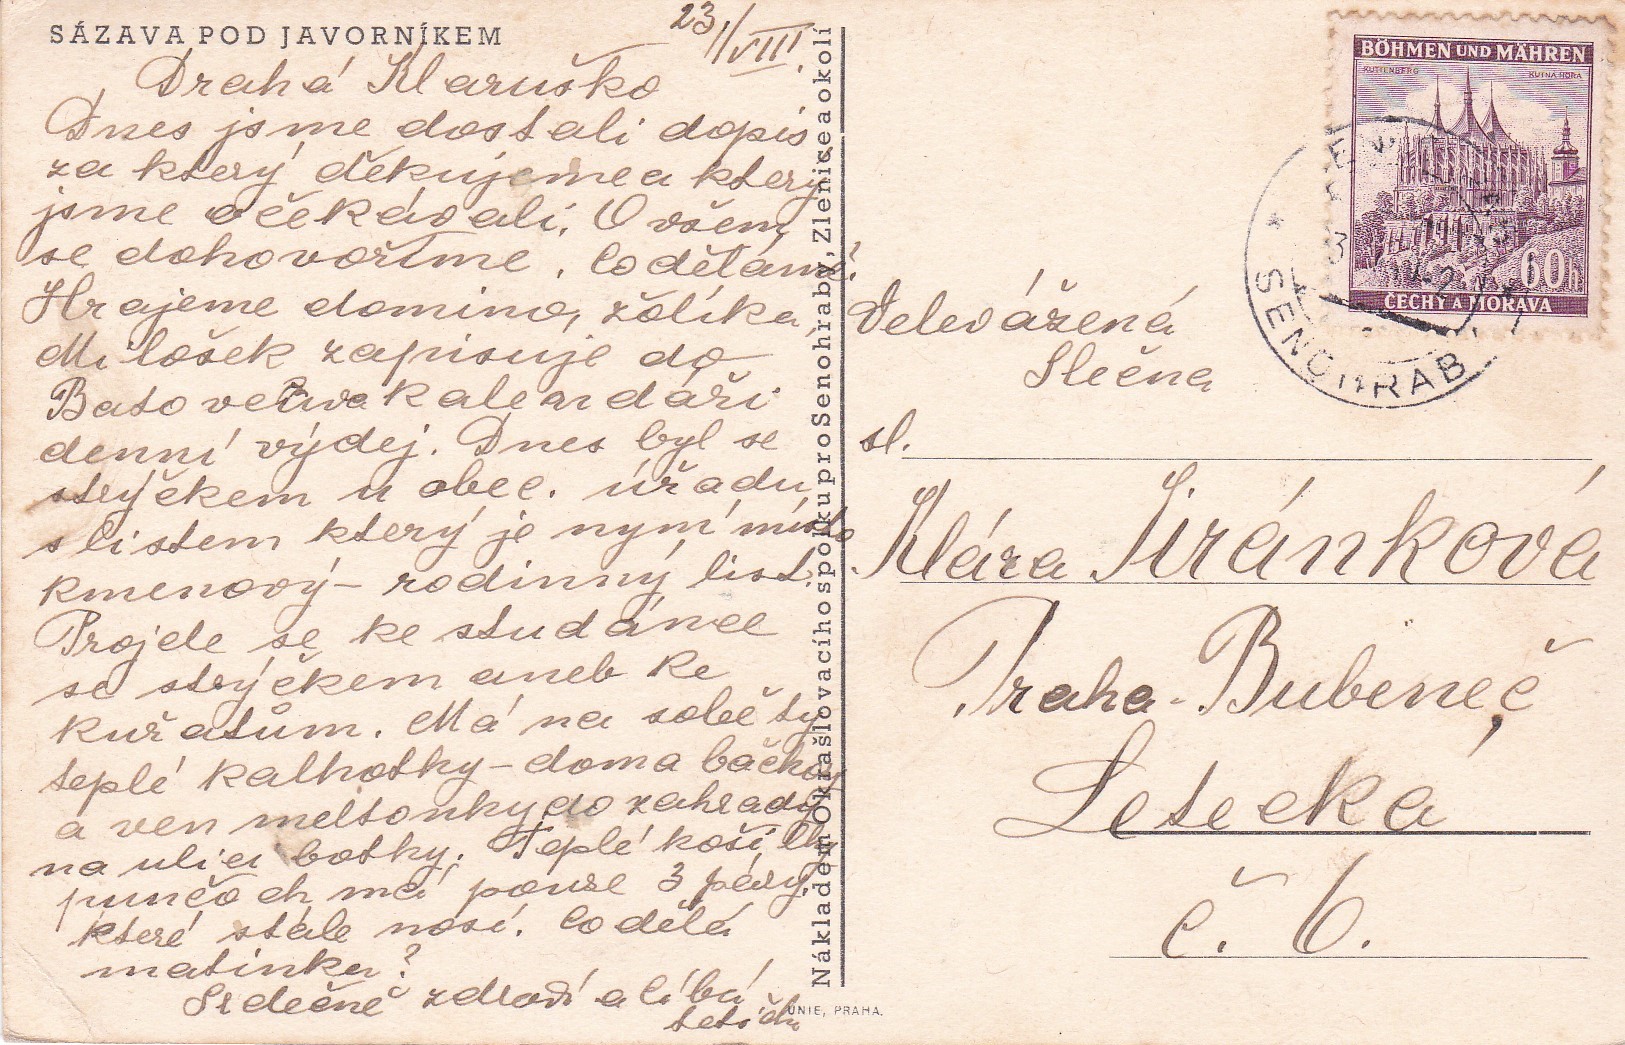 SÁZAVA POD JAVORNÍKEM
23/VIII.
Drahá Klaruško
Dnes jsme dostali dopis
za který děkujeme a který
jsme očekávali. O všem
se dohovoříme. Co děláme?
Hrajeme domino, žolíka,
Milošek zapisuje do
Baťove kalendáři
denní výdej. Dnes byl se
strýčkem u obec. úřadu
s listem který je nymí místo
kmenový - rodinný list.
Projde se ke studánce
se strýčkem aneb ke
kuřatům. Má na sobě ty
teplé kalhotky - doma báčkory
a ven meltonky do zahrady
na ulici botky. Teplé košilky
punčoch má pouze 3 páry,
které stále nosí. Co dělá
matinka?
Srdečně zdraví a líbá
Nákladem Okrašlovacího spolku pro Senohraby, Zlenice a okolí
UNIE, PRAHA.
BÖHMEN UND MÄHREN
KUTTENBERG KUTNÁ HORA
60h
ČECHY A MORAVA
SENOHRAB
Velevážená
Slečna
sl.
Klára Jiránková
Praha - Bubeneč,
Letecká
č. 6.